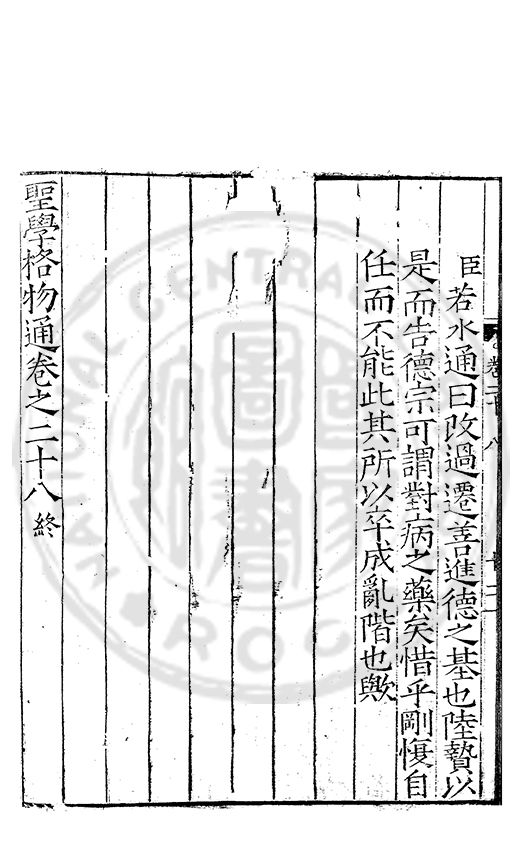 卷二十八
臣若水通曰改過遷善進德之基也陸贄以
是而告德宗可謂對病之藥矣惜乎剛愎自
任而不能此其所以卒成亂階也歟
聖學格物通卷之二十八終
NATIONAL CENTRAL LIBRARY
圖書